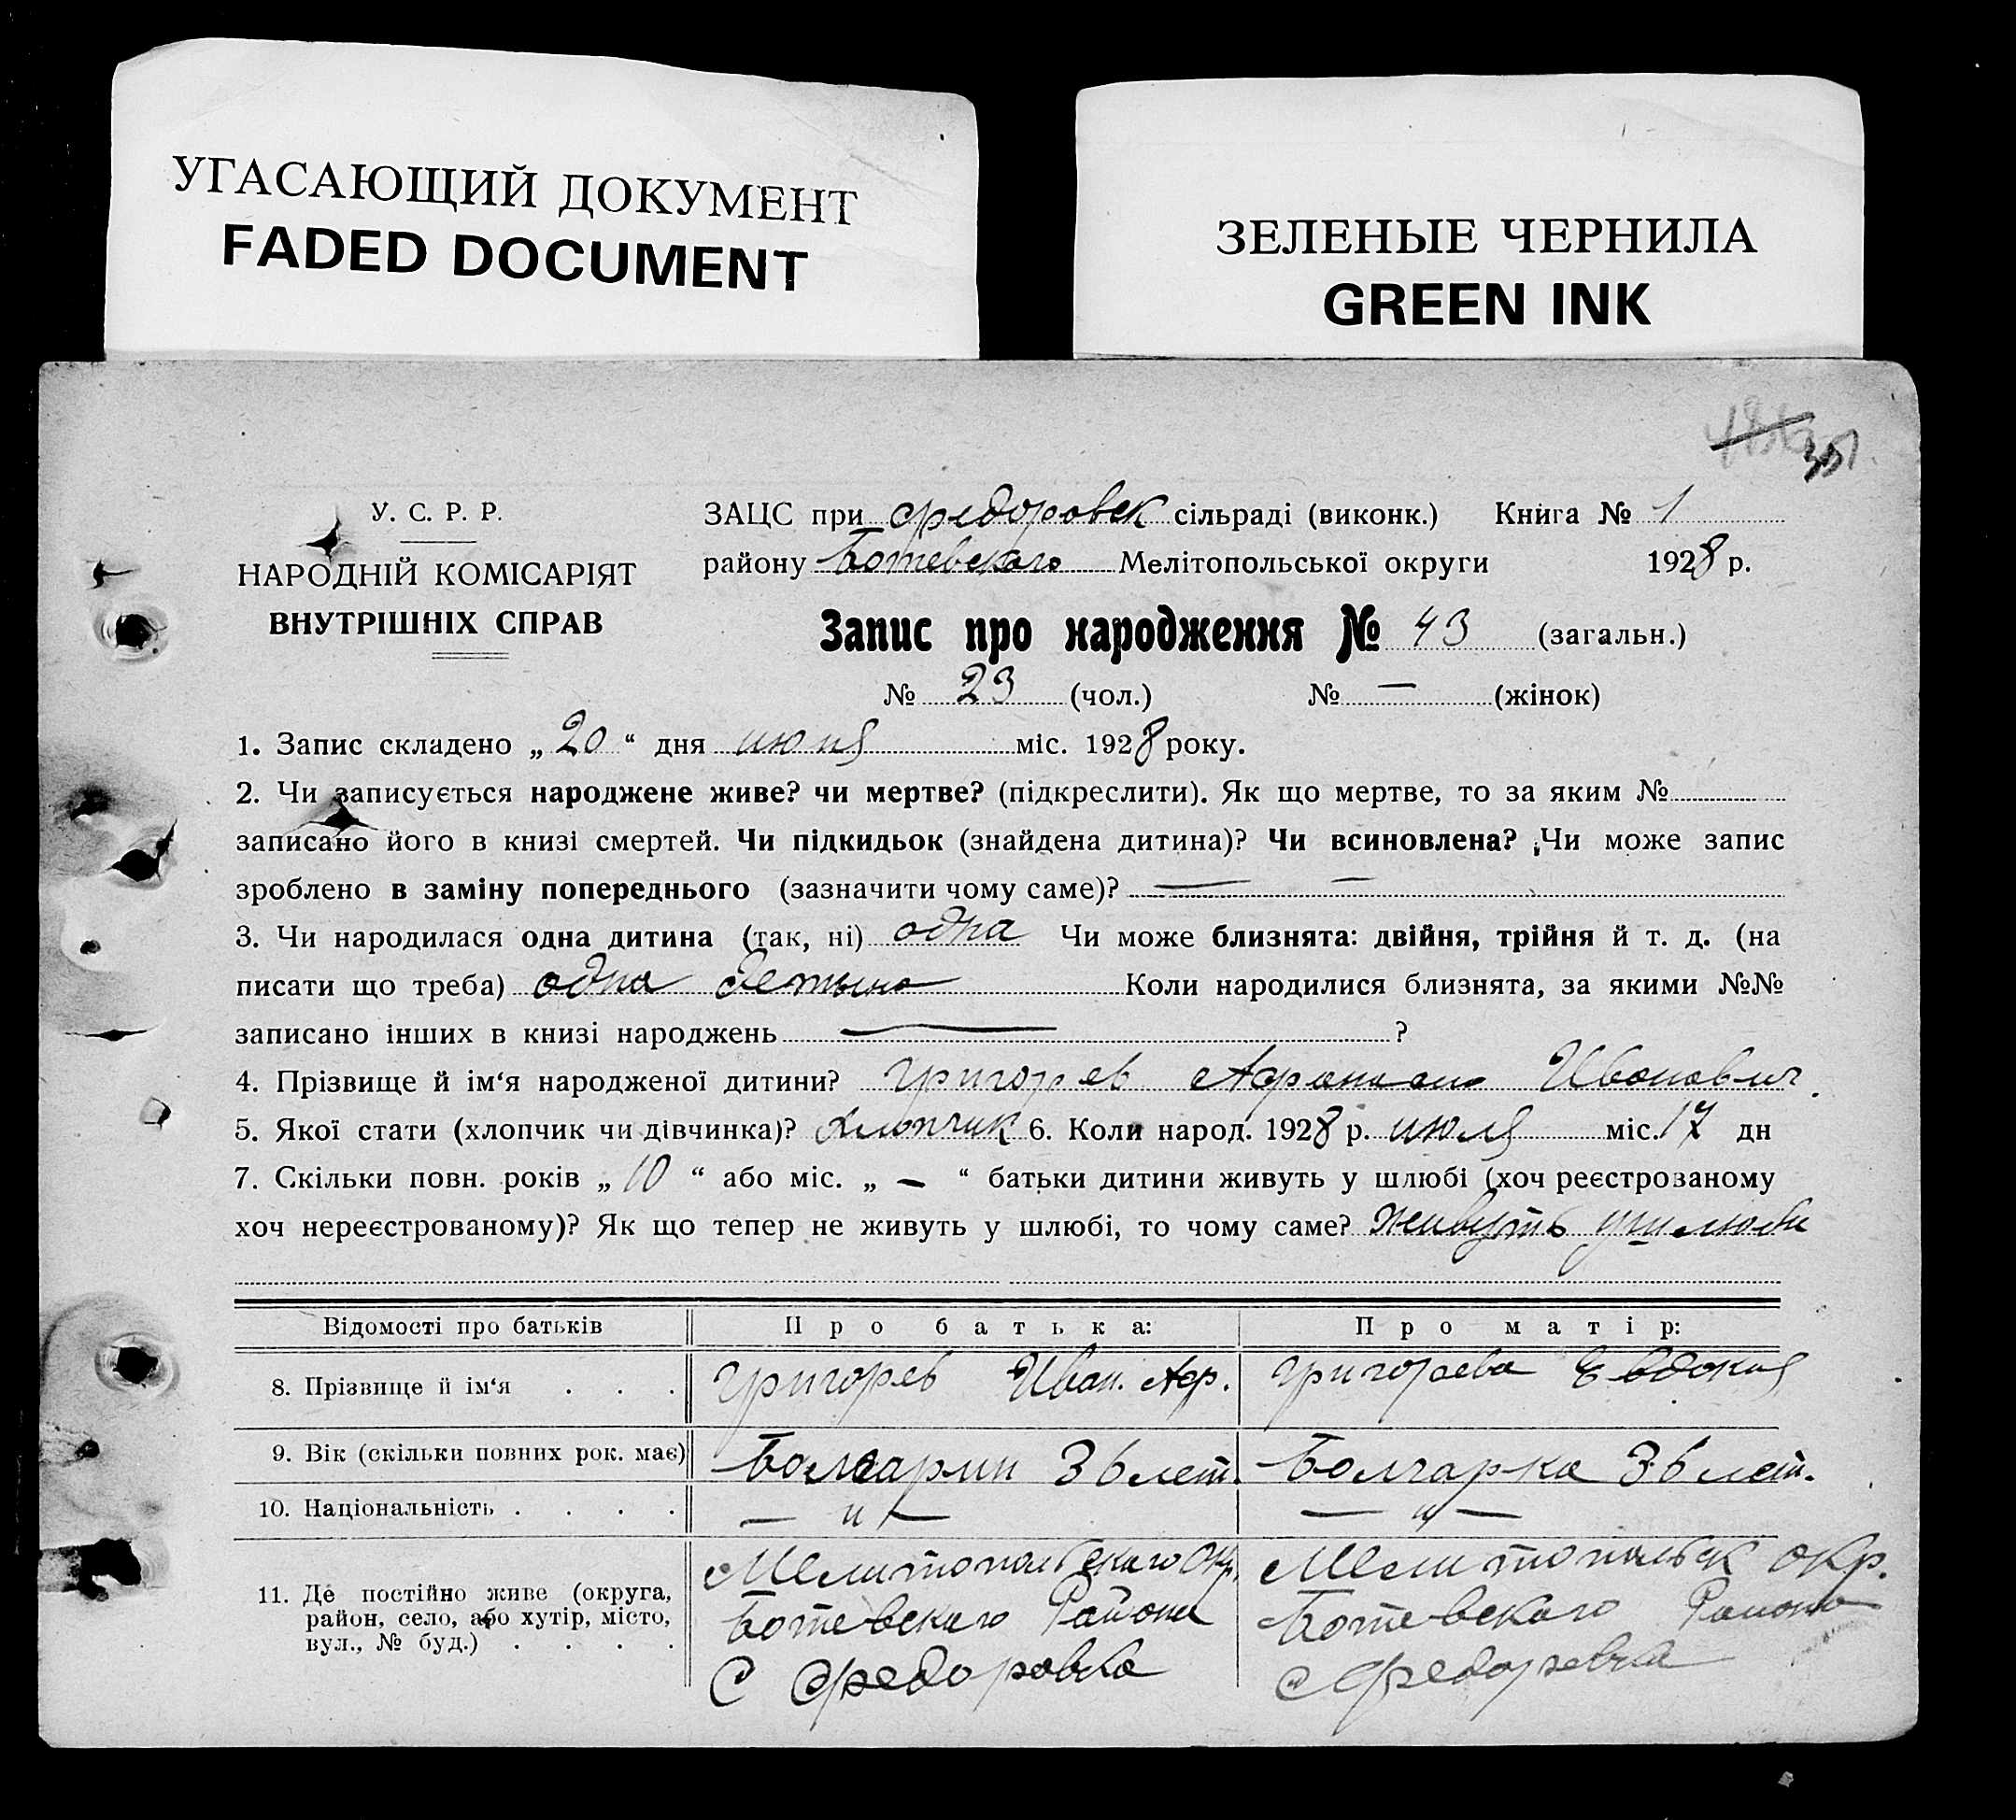 УГАСАЮЩИЙ ДОКУМЕНТ
FADED DOCUMENT
ЗЕЛЕНЫЕ ЧЕРНИЛА
GREEN INK
351
У. С. Р. Р.
НАРОДНІЙ КОМІСАРІЯТ
ВНУТРІШНІХ СПРАВ
ЗАЦС при Федоровск сільраді (виконк.) Книга № 1
району Ботевского Мелітопольської округи 1928 р.
Запис про народження № 43 (загальн.)
№ 23 (чол.) № — (жінок)
1. Запис складено „20“ дня июля міс. 1928 року.
2. Чи записується народжене живе? чи мертве? (підкреслити). Як що мертве, то за яким №
записано його в книзі смертей. Чи підкидьок (знайдена дитина)? Чи всиновлена? Чи може запис
зроблено в заміну попереднього (зазначити чому саме)? — —
3. Чи народилася одна дитина (так, ні) одна Чи може близнята: двійня, трійня й т. д. (на
писати що треба) одна детына Коли народилися близнята, за якими №№
записано інших в книзі народжень — ?
4. Прізвище й ім‘я народженої дитини? Григорев Афанасий Иванович
5. Якої стати (хлопчик чи дівчинка)? Хлопчик 6. Коли народ. 1928 р. июля міс. 17 дн
7. Скільки повн. років „10“ або міс. „—“ батьки дитини живуть у шлюбі (хоч реєстрованому
хоч нереєстрованому)? Як що тепер не живуть у шлюбі, то чому саме? Живуть у шлюби
Відомості про батьків Про батька: Про матір:
8. Прізвище й ім‘я . . . Григорев Иван. Аф. Григорева Евдокия
9. Вік (скільки повних рок. має) Болгарин 36 лет. Болгарка 36 лет.
10. Національність . . . . — „ — — „ —
11. Де постійно живе (округа,
район, село, або хутір, місто,
вул., № буд.) . . . .
Мелитопольского Окр.
Ботевского Района
С Федоровка
Мелитопольск окр.
Ботевского Района
с Федоровка